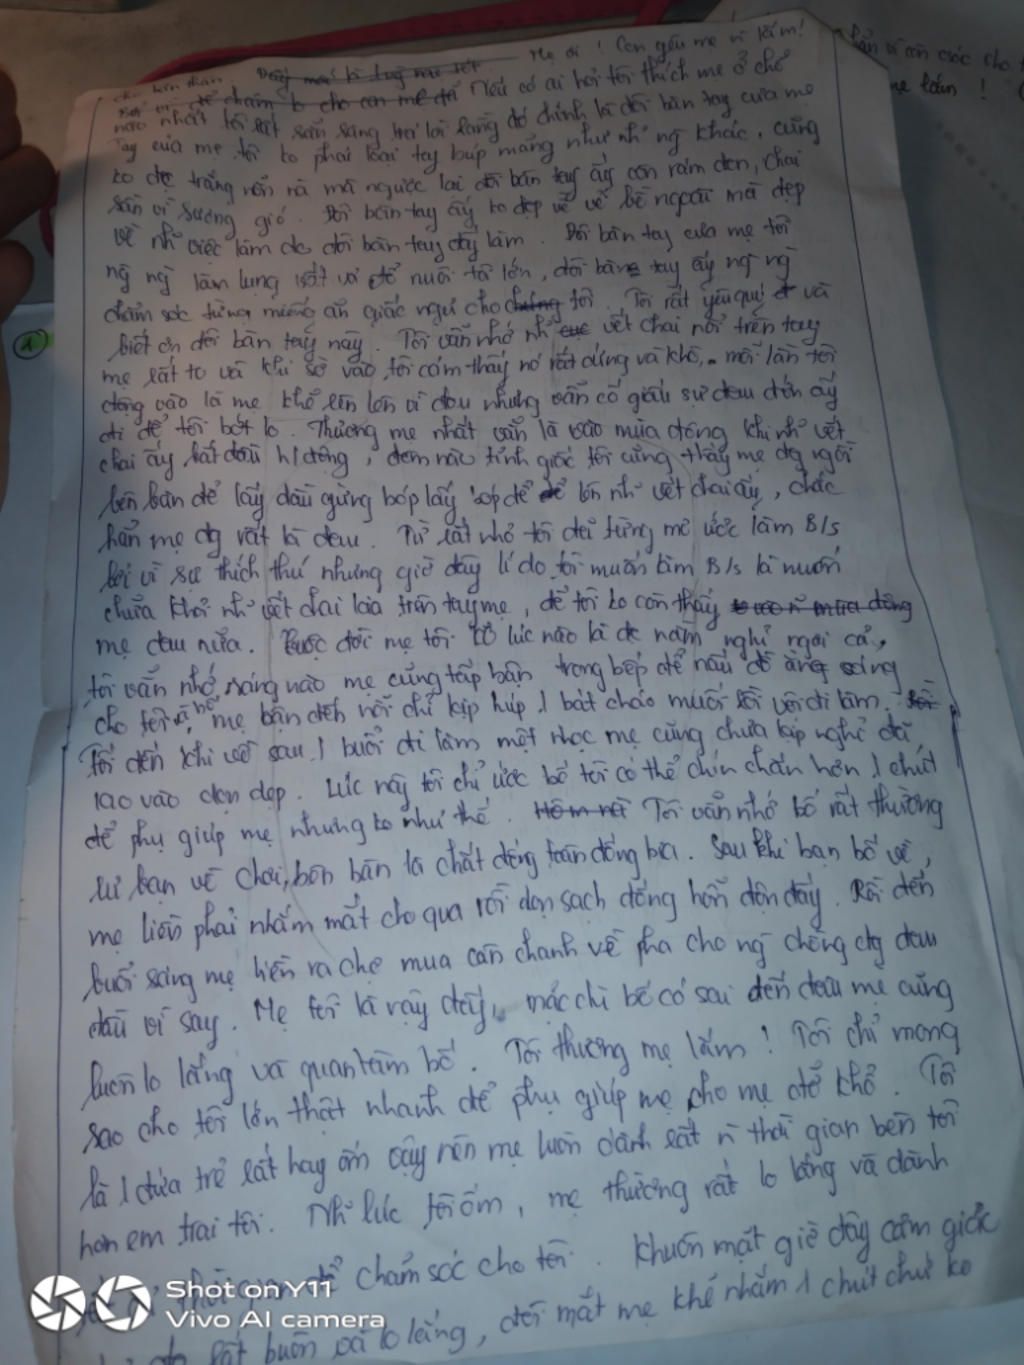 Mẹ ơi ! Con yêu mẹ n lắm!
cho bản thân.
Nếu có ai hỏi tôi thích mẹ ở chỗ
nào nhất tôi rất sẵn sàng trả lời rằng đó chính là đôi bàn tay của mẹ
Tay của mẹ tôi ko phải loại tay búp măng như nh~ ng khác, cũng
ko đc trắng nõn nà mà ngược lại đôi bàn tay ấy còn rám đen, chai
sần vì sương gió. Đôi bàn tay ấy ko đẹp về vẻ bề ngoài mà đẹp
về nh~ việc làm do đôi bàn tay đấy làm. Đôi bàn tay của mẹ tôi
ng~ ng~ làm lụng vất vả để nuôi tôi lớn, đôi bàn tay ấy ng~ ng~
chăm sóc từng miếng ăn giấc ngủ cho tôi. Tôi rất yêu quý và
biết ơn đôi bàn tay này. Tôi vẫn nhớ nh~ vết chai nổi trên tay
mẹ rất to và khi sờ vào, tôi cảm thấy nó rất cứng và khô, mỗi lần tôi
động vào là mẹ khẽ lên vì đau nhưng vẫn cố giấu sự đau đớn ấy
đi để tôi bớt lo. Thương mẹ nhất vẫn là vào mùa đông khi nh~ vết
chai ấy bắt đầu h/động, đêm nào tỉnh giấc tôi cũng thấy mẹ đg ngồi
bên bàn để lấy dầu gừng bóp lấy bóp để nh~ vết chai ấy, chắc
hẳn mẹ đg rất là đau. Từ rất nhỏ tôi đã từng mơ ước làm B/s
bởi vì sự thích thú nhưng giờ đây lí do tôi muốn làm B/s là muốn
chữa khỏi nh~ vết chai của trên tay mẹ, để tôi ko còn thấy
mẹ đau nữa. Cuộc đời mẹ tôi có lúc nào là đc nằm nghỉ ngơi cả,
tôi vẫn nhớ sáng nào mẹ cũng tấp bận trong bếp để nấu đồ ăn sáng
cho tôi và bố, mẹ bận đến nỗi chỉ kịp húp 1 bát cháo muối rồi vội đi làm.
Tối đến khi về sau 1 buổi đi làm mệt nhọc mẹ cũng chưa kịp nghỉ đã
lao vào dọn dẹp. Lúc này tôi chỉ ước bố tôi có thể chín chắn hơn 1 chút
để phụ giúp mẹ nhưng ko như thế. Tôi vẫn nhớ bố rất thường
rủ bạn về chơi, bên bàn là chất đống toàn đống bia. Sau khi bạn bố về,
mẹ liền phải nhắm mắt cho qua rồi dọn sạch đống hỗn độn đấy. Rồi đến
buổi sáng mẹ liền ra chợ mua cân chanh về pha cho ng~ chồng đg đau
đầu vì say. Mẹ tôi là vậy đấy, mặc chi bố có sai đến đâu mẹ cũng
luôn lo lắng và quan tâm bố. Tôi thương mẹ lắm ! Tôi chỉ mong
sao cho tôi lớn thật nhanh để phụ giúp mẹ, cho mẹ đỡ khổ. Tôi
là 1 đứa trẻ rất hay ốm vậy nên mẹ luôn dành rất n~ thời gian bên tôi
hơn em trai tôi. Nh~ lúc tôi ốm, mẹ thường rất lo lắng và dành
thời gian để chăm sóc cho tôi. Khuôn mặt giờ đây cảm giác
rất buồn và lo lắng, đôi mắt mẹ khẽ nhắm 1 chút chứ ko
bản vì còn cóc cho
mẹ lắm !
1
Shot on Y11
Vivo AI camera